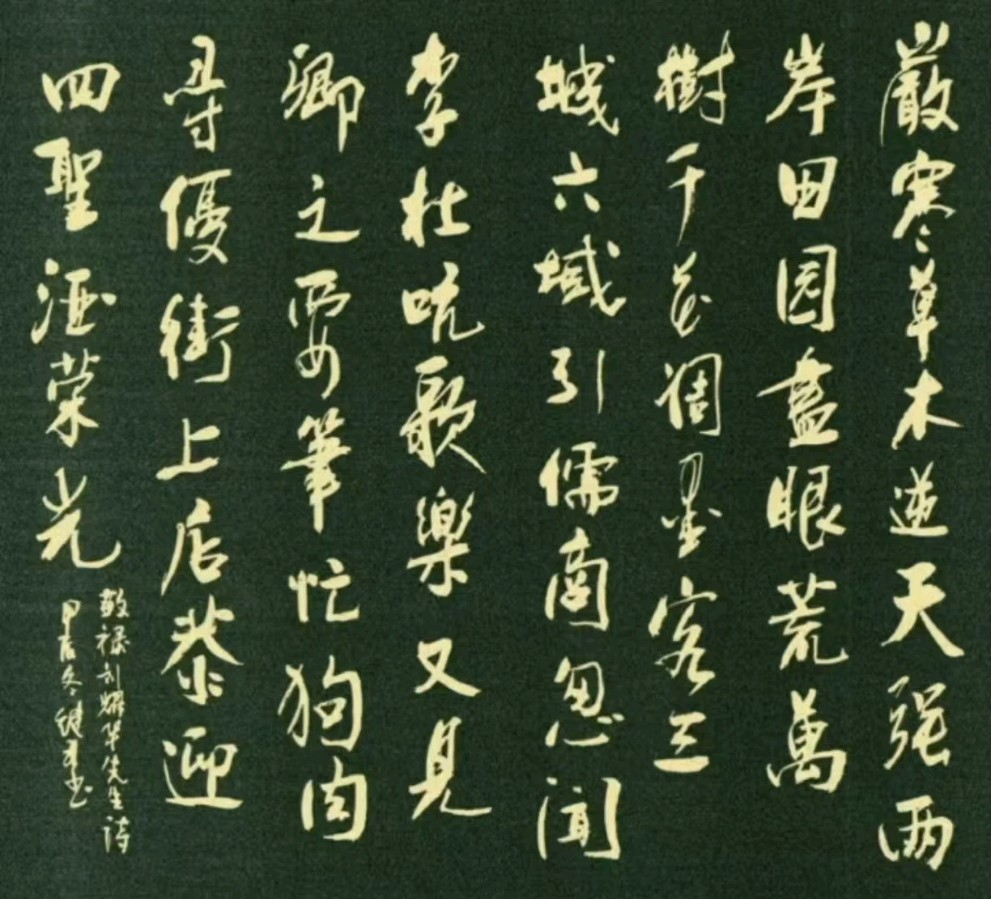 嚴寒草木逆天强两
岸田园盡眼荒萬
樹千花凋墨客三
城六域引儒商忽闻
李杜吭歌樂又見
卿之耍筆忙狗肉
尋優街上店恭迎
四聖酒榮光
敬禄刘耀华先生詩
甲辰冬健书